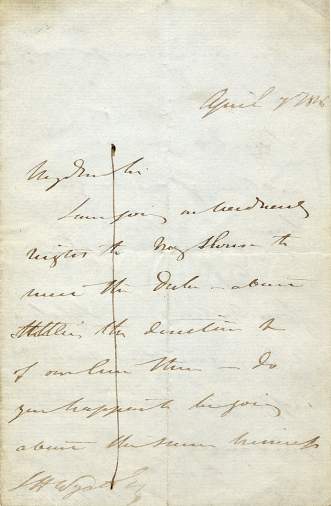 April 7th
My dear Sir
I am going on Wednesday
night to Tring House to
meet the Duke — about
settling the direction &c
of our line there — do
you happen to be going
about the same business